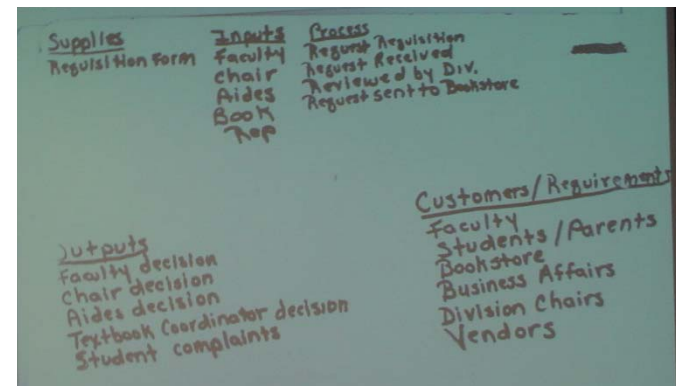 Supplies
Requisition Form
Inputs
Faculty
Chair
Aides
Book
Rep
Process
Request Requisition
Request Received
Reviewed by Div.
Request sent to Bookstore
Outputs
Faculty decision
Chair decision
Aides decision
Textbook Coordinator decision
Student complaints
Customers/Requirements
Faculty
Students/Parents
Bookstore
Business Affairs
Division Chairs
Vendors